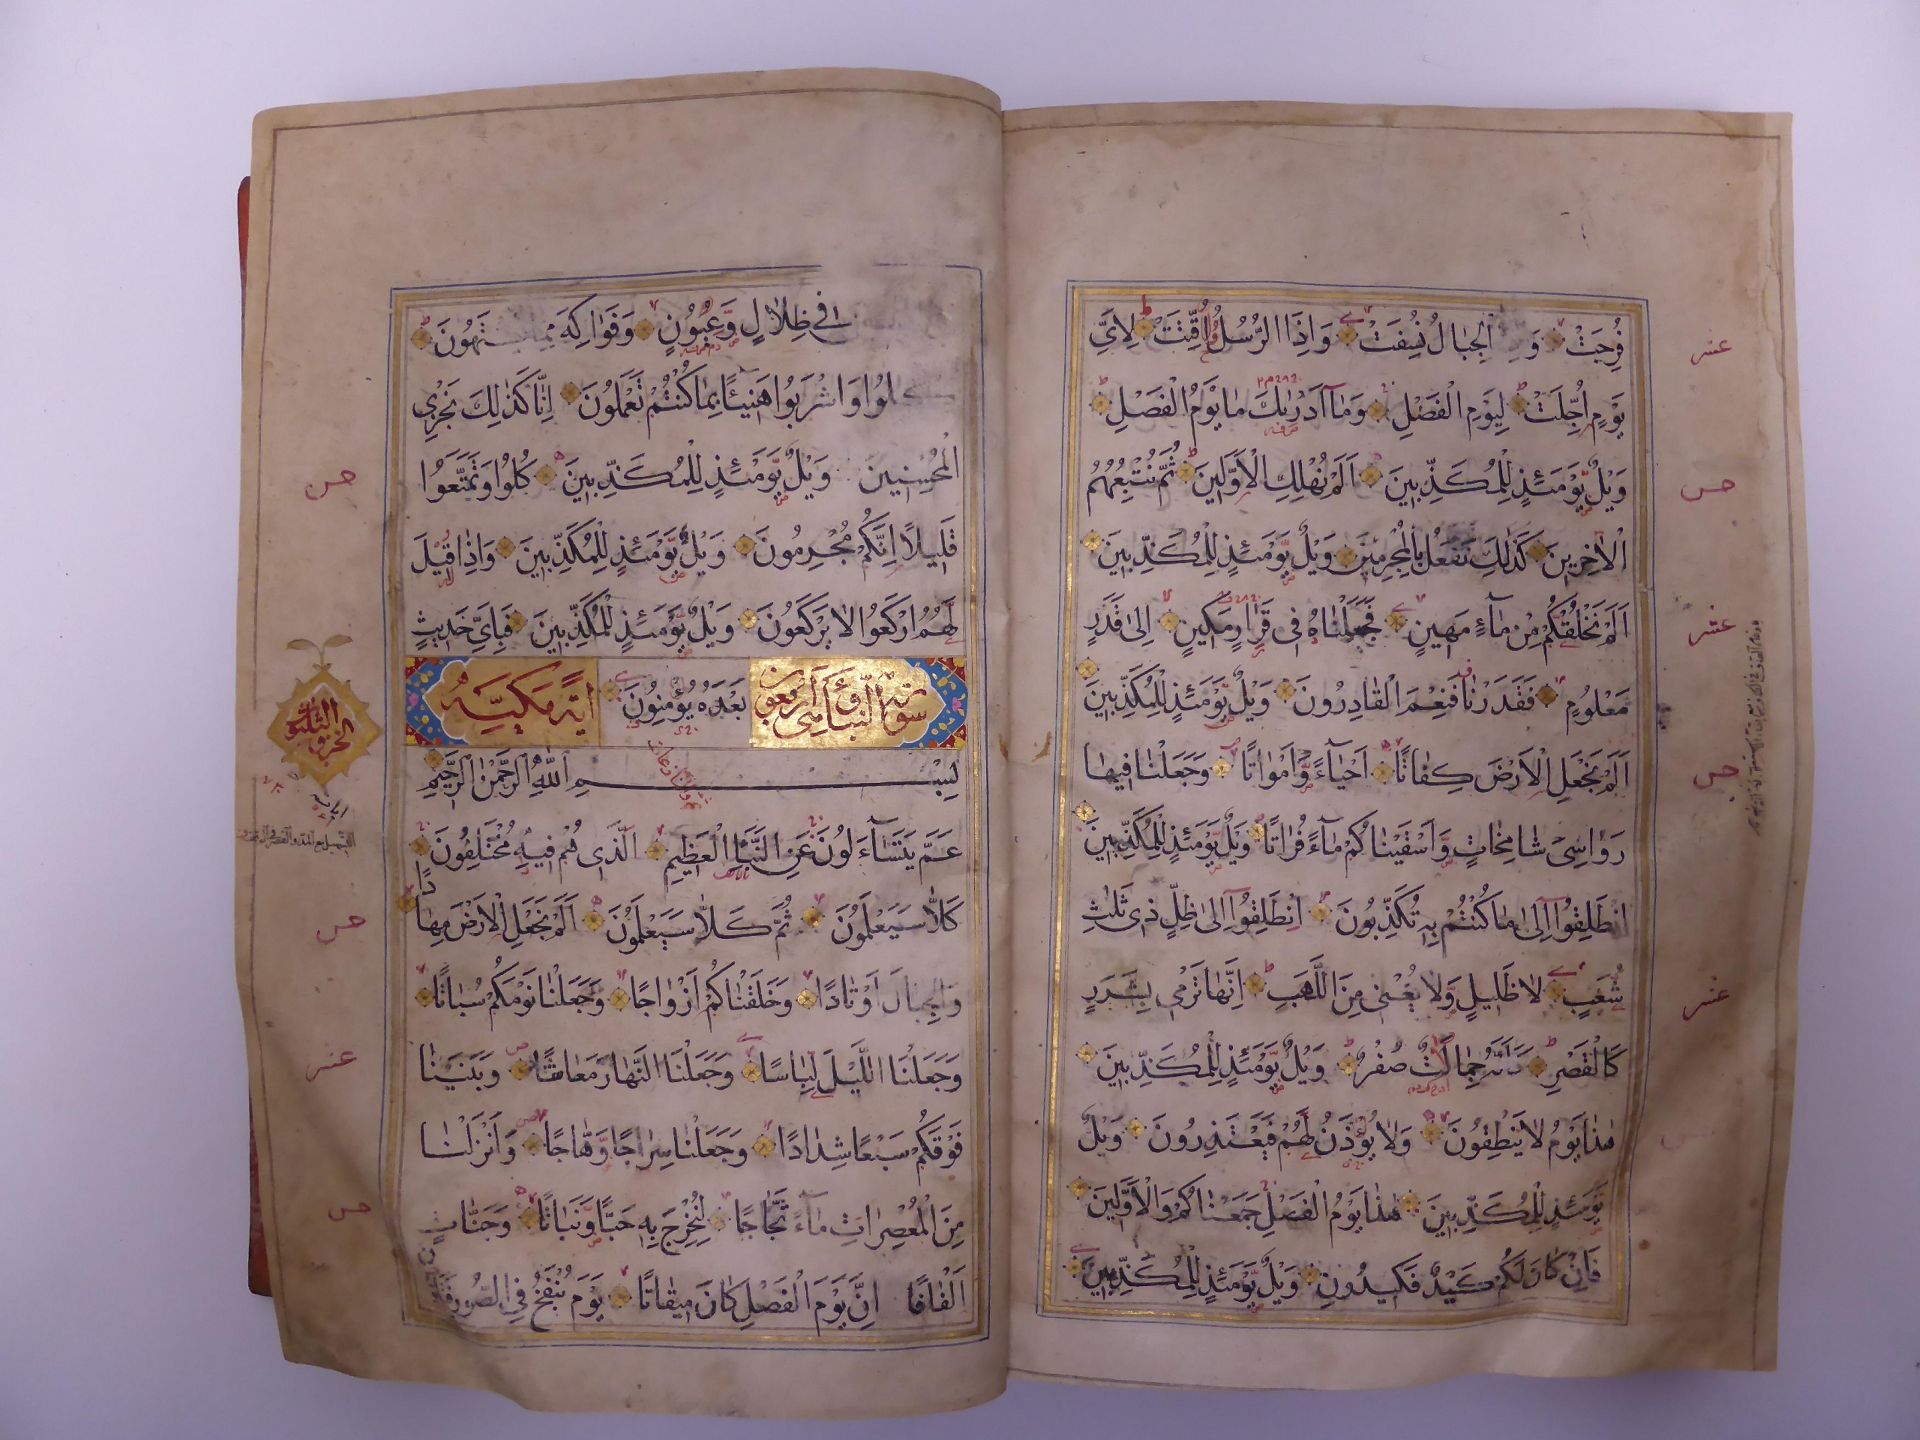 فُرِجَتْ وَ الْجِبَالُ نُسِفَتْ وَاِذَا الرُّسُلُ اُقِّتَتْ لِاَيِّ
يَوْمٍ اُجِّلَتْ لِيَوْمِ الْفَصْلِ وَمَآ اَدْرٰيكَ مَا يَوْمُ الْفَصْلِ
وَيْلٌ يَوْمَئِذٍ لِلْمُكَذِّبِينَ اَلَمْ نُهْلِكِ الْاَوَّلِينَ ثُمَّ نُتْبِعُهُمُ
الْاٰخِرِينَ كَذٰلِكَ نَفْعَلُ بِالْمُجْرِمِينَ وَيْلٌ يَوْمَئِذٍ لِلْمُكَذِّبِينَ
اَلَمْ نَخْلُقْكُمْ مِنْ مَآءٍ مَهِينٍ فَجَعَلْنَاهُ فِى قَرَارٍ مَكِينٍ اِلٰى قَدَرٍ
مَعْلُومٍ فَقَدَرْنَا فَنِعْمَ الْقَادِرُونَ وَيْلٌ يَوْمَئِذٍ لِلْمُكَذِّبِينَ
اَلَمْ نَجْعَلِ الْاَرْضَ كِفَاتًا اَحْيَآءً وَّاَمْوَاتًا وَجَعَلْنَا فِيهَا
رَوَاسِىَ شَامِخَاتٍ وَّاَسْقَيْنَاكُمْ مَآءً فُرَاتًا وَيْلٌ يَوْمَئِذٍ لِلْمُكَذِّبِينَ
اِنْطَلِقُوٓا اِلٰى مَا كُنْتُمْ بِهِ تُكَذِّبُونَ اِنْطَلِقُوٓا اِلٰى ظِلٍّ ذِى ثَلٰثِ
شُعَبٍ لَا ظَلِيلٍ وَّلَا يُغْنِى مِنَ اللَّهَبِ اِنَّهَا تَرْمِى بِشَرَرٍ
كَالْقَصْرِ كَاَنَّهُ جِمَالَتٌ صُفْرٌ وَيْلٌ يَوْمَئِذٍ لِلْمُكَذِّبِينَ
هٰذَا يَوْمُ لَا يَنْطِقُونَ وَلَا يُؤْذَنُ لَهُمْ فَيَعْتَذِرُونَ وَيْلٌ
يَوْمَئِذٍ لِلْمُكَذِّبِينَ هٰذَا يَوْمُ الْفَصْلِ جَمَعْنَاكُمْ وَالْاَوَّلِينَ
فَاِنْ كَانَ لَكُمْ كَيْدٌ فَكِيدُونِ وَيْلٌ يَوْمَئِذٍ لِلْمُكَذِّبِينَ
عشر
عشر
عشر
فِى ظِلَالٍ وَّعُيُونٍ وَفَوَاكِهَ مِمَّا يَشْتَهُونَ
كُلُوا وَاشْرَبُوا هَنِيٓئًا بِمَا كُنْتُمْ تَعْمَلُونَ اِنَّا كَذٰلِكَ نَجْزِى
الْمُحْسِنِينَ وَيْلٌ يَوْمَئِذٍ لِلْمُكَذِّبِينَ كُلُوا وَتَمَتَّعُوا
قَلِيلًا اِنَّكُمْ مُجْرِمُونَ وَيْلٌ يَوْمَئِذٍ لِلْمُكَذِّبِينَ وَاِذَا قِيلَ
لَهُمُ ارْكَعُوا لَا يَرْكَعُونَ وَيْلٌ يَوْمَئِذٍ لِلْمُكَذِّبِينَ فَبِاَىِّ حَدِيثٍ
بَعْدَهُ يُؤْمِنُونَ
سورة النبأ وهى اربعون اية مكية
بِسْمِ اللّٰهِ الرَّحْمٰنِ الرَّحِيمِ
عَمَّ يَتَسَآءَلُونَ عَنِ النَّبَاِ الْعَظِيمِ اَلَّذِى هُمْ فِيهِ مُخْتَلِفُونَ
كَلَّا سَيَعْلَمُونَ ثُمَّ كَلَّا سَيَعْلَمُونَ اَلَمْ نَجْعَلِ الْاَرْضَ مِهَادًا
وَالْجِبَالَ اَوْتَادًا وَخَلَقْنَاكُمْ اَزْوَاجًا وَجَعَلْنَا نَوْمَكُمْ سُبَاتًا
وَجَعَلْنَا اللَّيْلَ لِبَاسًا وَجَعَلْنَا النَّهَارَ مَعَاشًا وَبَنَيْنَا
فَوْقَكُمْ سَبْعًا شِدَادًا وَجَعَلْنَا سِرَاجًا وَّهَّاجًا وَاَنْزَلْنَا
مِنَ الْمُعْصِرَاتِ مَآءً ثَجَّاجًا لِنُخْرِجَ بِهِ حَبًّا وَّنَبَاتًا وَجَنَّاتٍ
اَلْفَافًا اِنَّ يَوْمَ الْفَصْلِ كَانَ مِيقَاتًا يَوْمَ يُنْفَخُ فِى الصُّورِ
الجزو الثلثون
عشر